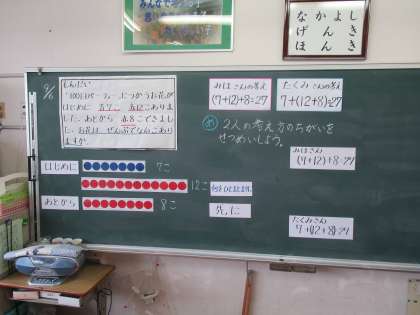 なかよし
げんき
ほんき
9/6
もんだい
「100にんパーティー」につかうお花が
はじめに 青7こ 赤12こありま
した。あとから 赤8こできまし
た。お花は、ぜんぶでなんこあり
ますか。
みほさんの考え
(7+12)+8=27
たくみさんの考え
7+(12+8)=27
め 2人の考え方のちがいを
せつめいしよう。
はじめに
7こ
12こ
あとから
8こ
先に
みほさん
(7+12)+8=27
たくみさん
7+(12+8)=27